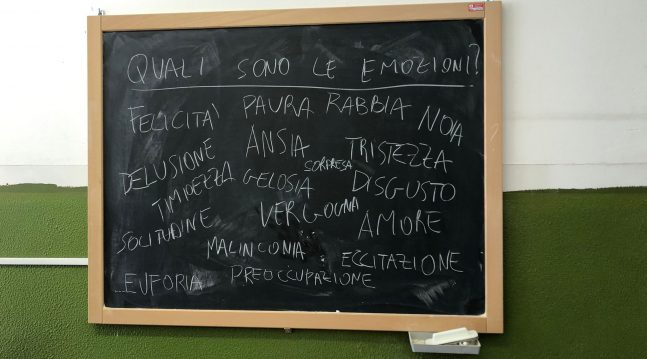 QUALI SONO LE EMOZIONI?
FELICITA' PAURA RABBIA NOIA
DELUSIONE ANSIA SORPRESA TRISTEZZA
TIMIDEZZA GELOSIA DISGUSTO
SOLITUDINE VERGOGNA AMORE
MALINCONIA ECCITAZIONE
EUFORIA PREOCCUPAZIONE